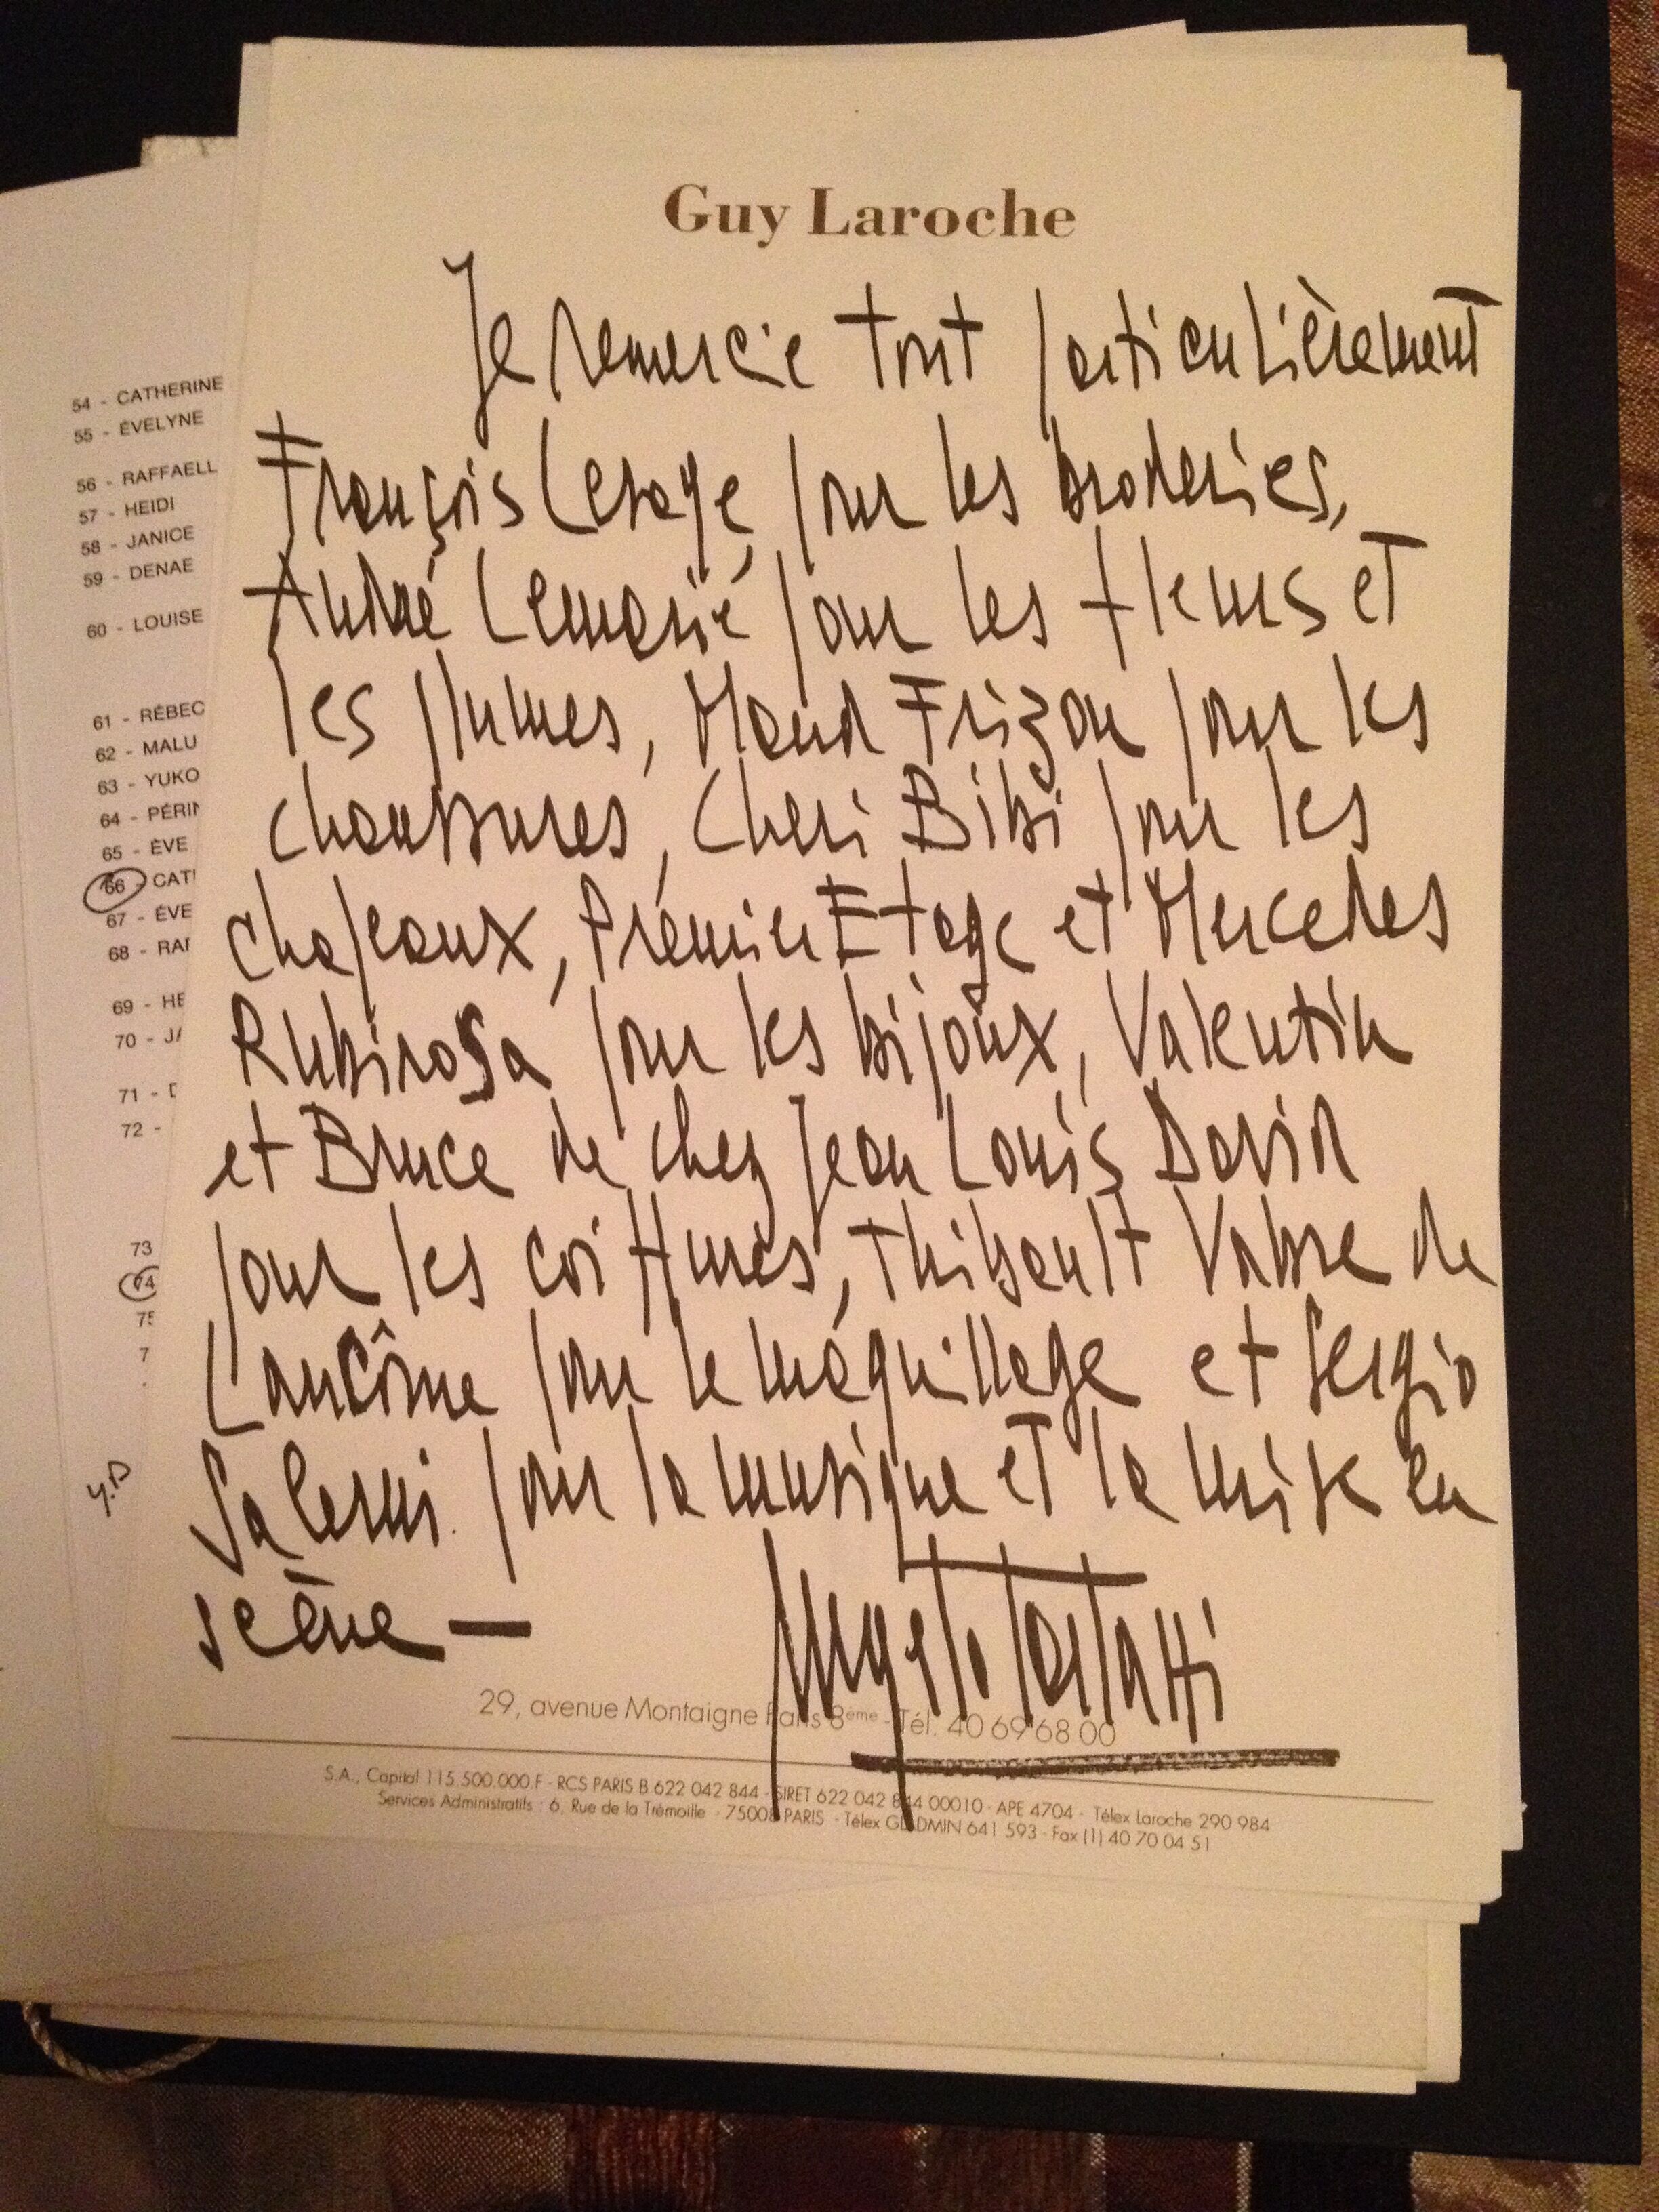 54 - CATHERINE
55 - ÉVELYNE
56 - RAFFAELL
57 - HEIDI
58 - JANICE
59 - DENAE
60 - LOUISE
61 - RÉBEC
62 - MALU
63 - YUKO
64 - PÉRIN
65 - ÈVE
66 - CATH
67 - ÉVE
68 - RAF
69 - HE
70 - JA
71 - D
72 -
73
74
75
7
Y.D
Guy Laroche
Je remercie tout particulièrement
François Lesage, pour les broderies,
André Lemarié pour les fleurs et
les plumes, Maud Frizon pour les
chaussures, Cheri Bibi pour les
chapeaux, Prémier Etage et Mercedes
Rubirosa pour les bijoux, Valentin
et Bruce de chez Jean Louis David
pour les coiffures, Thibault Vabre de
Lancôme pour le maquillage et Sergio
Salerni pour la musique et la mise en
scène —
Angelo Tarlazzi
29, avenue Montaigne Paris 8ème - Tél. 40 69 68 00
S.A., Capital 115.500.000.F - RCS PARIS B 622 042 844 - SIRET 622 042 844 00010 - APE 4704 - Télex Laroche 290 984
Services Administratifs : 6, Rue de la Trémoille - 75008 PARIS - Télex GLADMIN 641 593 - Fax (1) 40 70 04 51